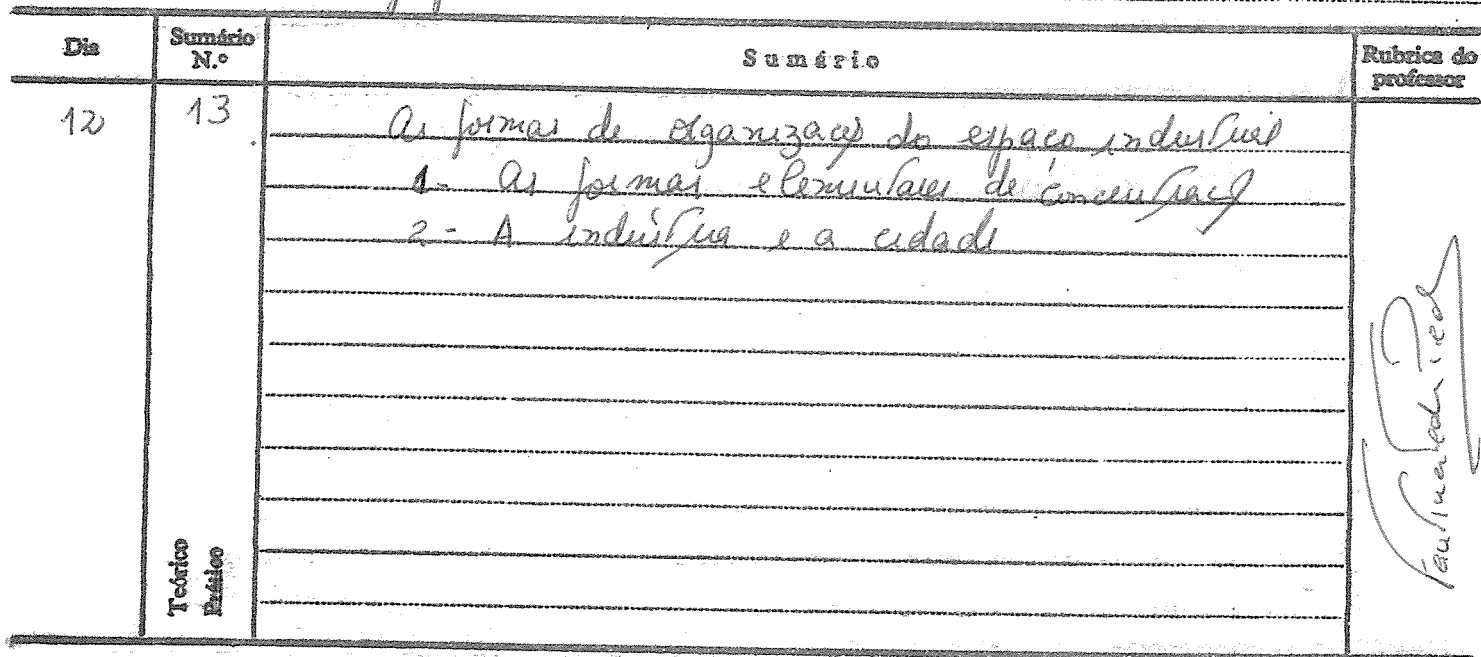 Dia
Sumário N.º
Sumário
Rubrica do professor
12
13
As formas de organização do espaço industrial
1- As formas elementares de concentração
2- A indústria e a cidade
Teórico
Prático